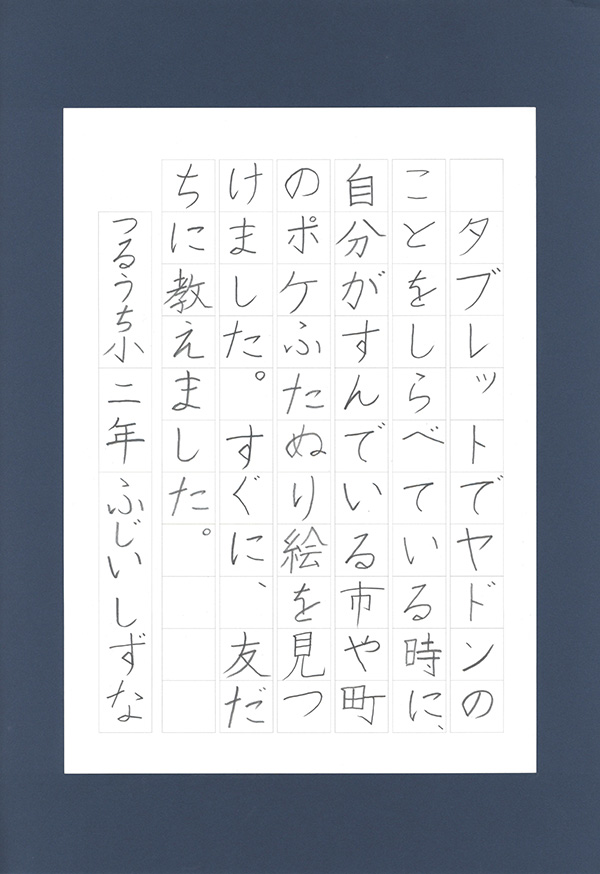 タブレットでヤドンの
ことをしらべている時に、
自分がすんでいる市や町
のポケふたぬり絵を見つ
けました。すぐに、友だ
ちに教えました。
つるうち小二年ふじいしずな